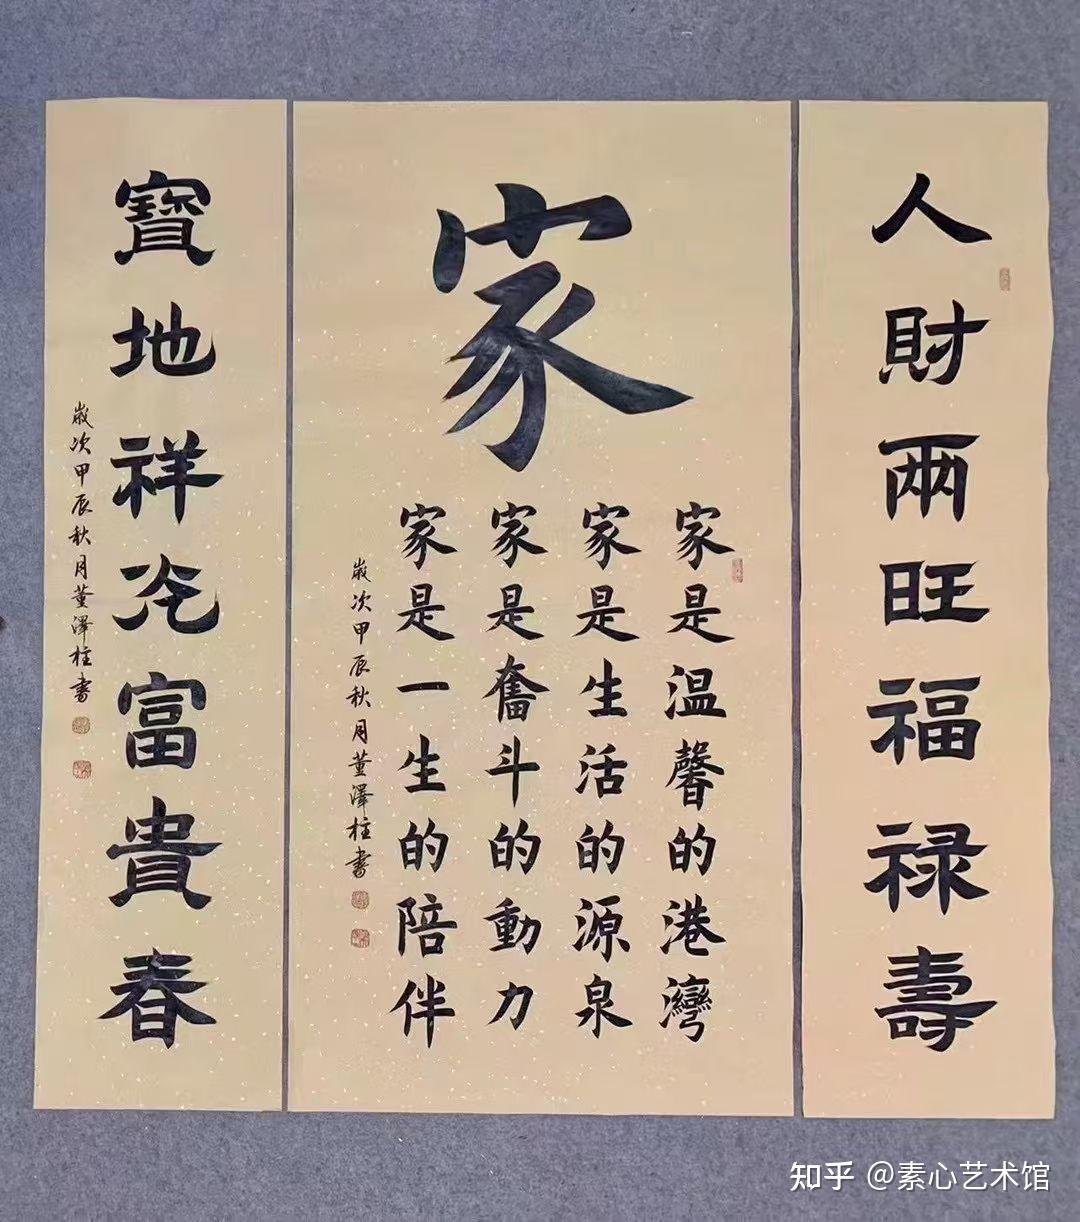 人財兩旺福禄壽
家
家是温馨的港灣
家是生活的源泉
家是奮斗的動力
家是一生的陪伴
歲次甲辰秋月董澤柱書
寶地祥光富貴春
歲次甲辰秋月董澤柱書
知乎 @素心艺术馆